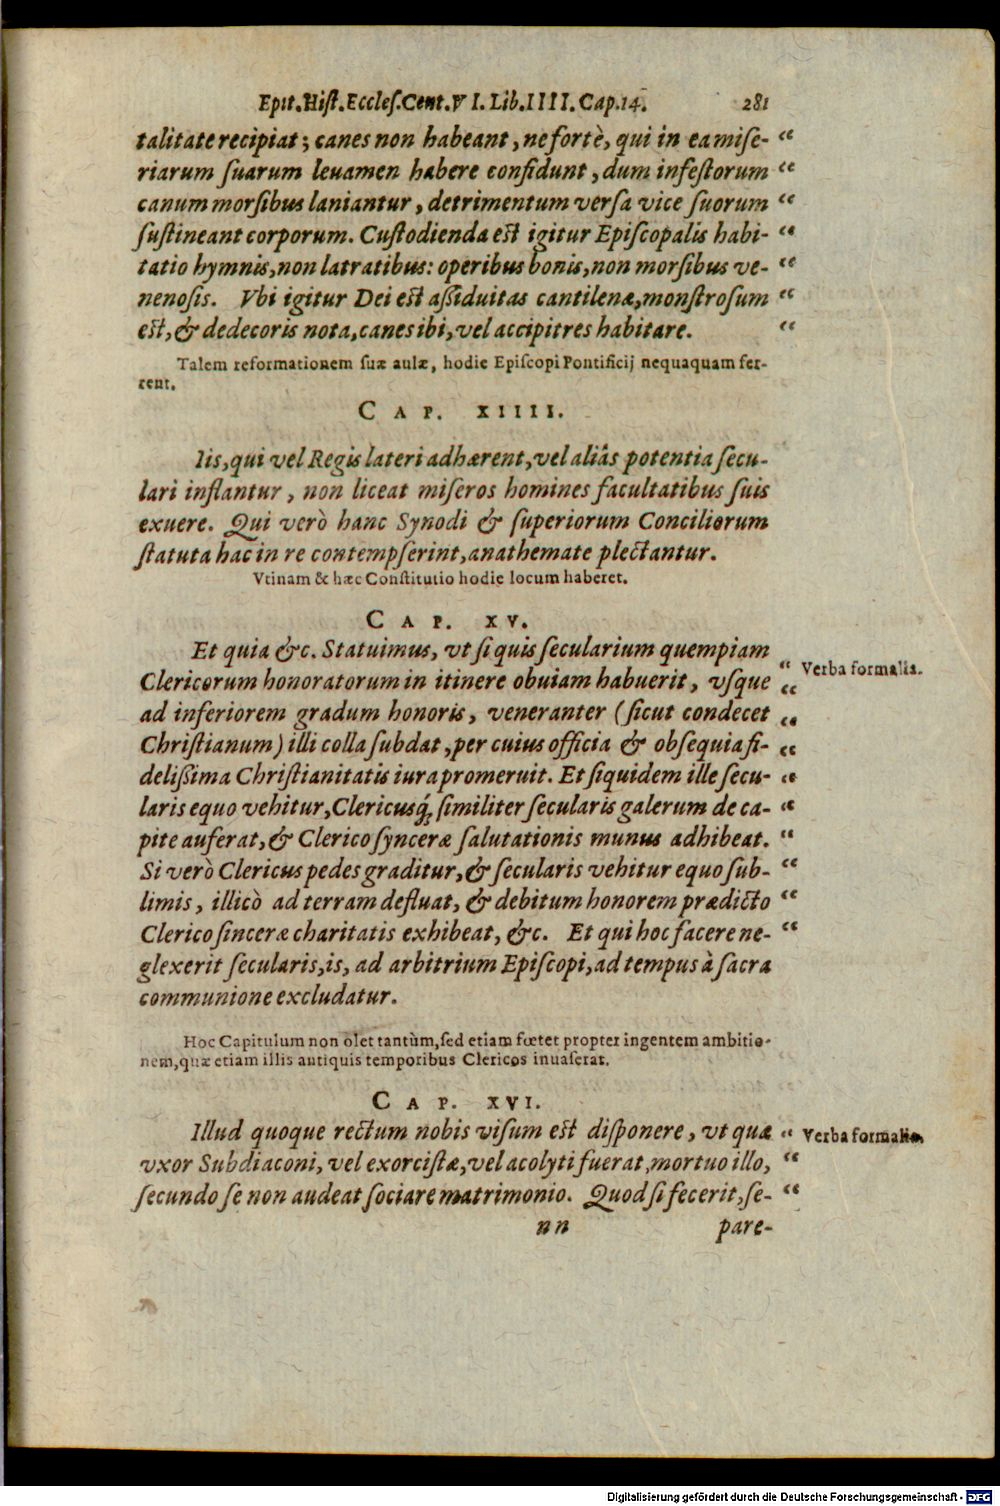 Epit. Hist. Eccles. Cent. VI. Lib. IIII. Cap. 14. 281
talitate recipiat; canes non habeant, ne fortè, qui in ea mise- “
riarum suarum levamen habere confidunt, dum infestorum “
canum morsibus laniantur, detrimentum versa vice suorum “
sustineant corporum. Custodienda est igitur Episcopalis habi- “
tatio hymnis, non latratibus: operibus bonis, non morsibus ve- “
nenosis. Vbi igitur Dei est assiduitas cantilenæ, monstrosum “
est, & dedecoris nota, canes ibi, vel accipitres habitare. “
Talem reformationem suæ aulæ, hodie Episcopi Pontificij nequaquam fer-
rent.
CAP. XIIII.
Iis, qui vel Regis lateri adhærent, vel aliâs potentia secu-
lari inflantur, non liceat miseros homines facultatibus suis
exuere. Qui verò hanc Synodi & superiorum Conciliorum
statuta hac in re contempserint, anathemate plectantur.
Vtinam & hæc Constitutio hodie locum haberet.
CAP. XV.
Et quia &c. Statuimus, vt si quis secularium quempiam
“ Verba formalia.
Clericorum honoratorum in itinere obuiam habuerit, vsque “
ad inferiorem gradum honoris, veneranter (sicut condecet “
Christianum) illi colla subdat, per cuius officia & obsequia fi- “
delissima Christianitatis iura promeruit. Et siquidem ille secu- “
laris equo vehitur, Clericusq́; similiter secularis galerum de ca- “
pite auferat, & Clerico synceræ salutationis munus adhibeat. “
Si verò Clericus pedes graditur, & secularis vehitur equo sub- “
limis, illicò ad terram defluat, & debitum honorem prædicto “
Clerico sinceræ charitatis exhibeat, &c. Et qui hoc facere ne- “
glexerit secularis, is, ad arbitrium Episcopi, ad tempus à sacra
communione excludatur.
Hoc Capitulum non olet tantùm, sed etiam fœtet propter ingentem ambitio-
nem, quæ etiam illis antiquis temporibus Clericos inuaserat.
CAP. XVI.
Illud quoque rectum nobis visum est disponere, vt quæ “ Verba formalia.
vxor Subdiaconi, vel exorcistæ, vel acolyti fuerat, mortuo illo, “
secundo se non audeat sociare matrimonio. Quod si fecerit, se- “
nn pare-
Digitalisierung gefördert durch die Deutsche Forschungsgemeinschaft - DFG